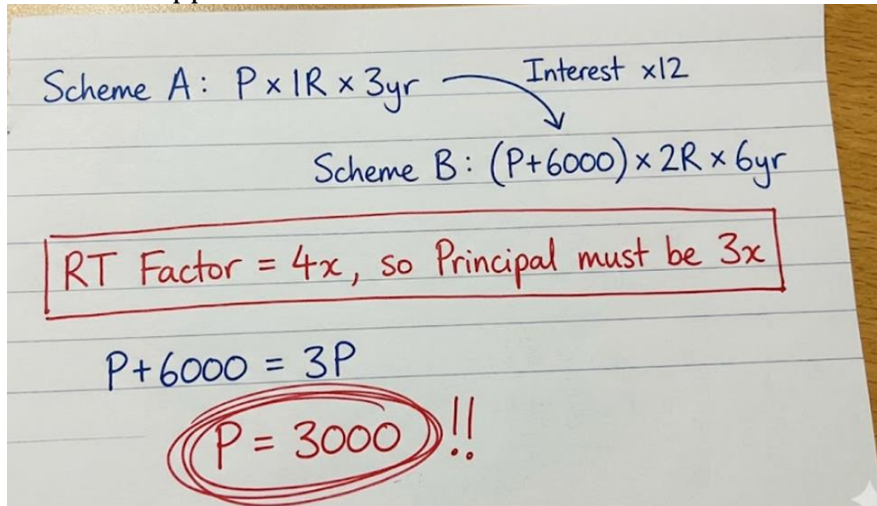 Scheme A: P x 1R x 3yr
Interest x12
Scheme B: (P+6000) x 2R x 6yr
RT Factor = 4x, so Principal must be 3x
P+6000 = 3P
P = 3000 !!